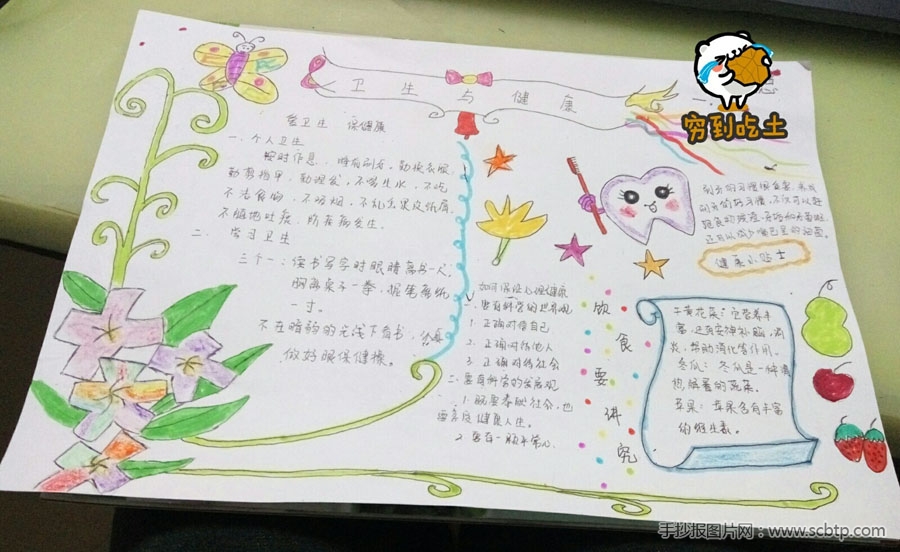 卫生与健康
穷到吃土
爱卫生 保健康
一、个人卫生
按时作息,睡前刷牙,勤换衣服,
勤剪指甲,勤理发,不喝生水,不吃
不洁食物,不吸烟,不乱丢果皮纸屑,
不随地吐痰,防疾病发生。
二、学习卫生
三个一:读书写字时眼睛离书一尺,
胸离桌子一拳,握笔离纸
一寸。
不在暗弱的光线下看书,
做好眼保健操。
如何保持心理健康
一.要有科学的世界观
1.正确对待自己
2.正确对待他人
3.正确对待社会
二.要有科学的发展观
社会,也
健康人生。
2.要有一颗平常心
饮食要讲究
刷牙的习惯很重要,
刷牙的好习惯,不仅可以
健康小贴士
黄花菜:它营养丰
富,还有安神补脑,消
炎,帮助消化等作用。
冬瓜:冬瓜是一种清
热解暑的蔬菜。
苹果:苹果含有丰富
的维生素。
手抄报图片网:www.scbtp.com